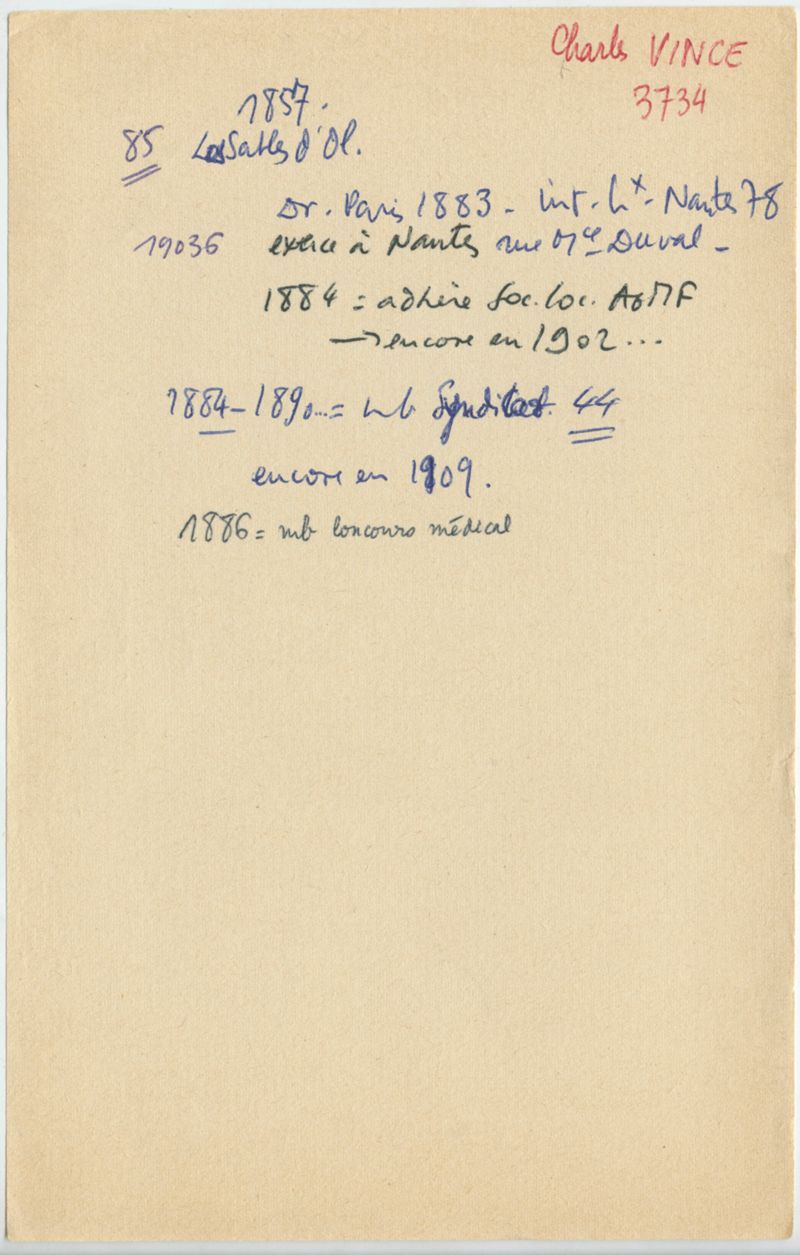 Charles VINCE
3734
1857.
85 Les Sables d'Ol.
Dr. Paris 1883 - int. hx. Nantes 78
19036 exerce à Nantes rue Mce Duval -
1884 = adhère Soc. loc. AGMF
→ encore en 1902 ...
1884 - 1890... = mb Syndicat 44
encore en 1909.
1886 = mb Concours médical